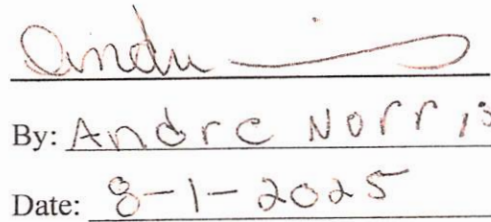 Andre
By: Andre Norris
Date: 8-1-2025